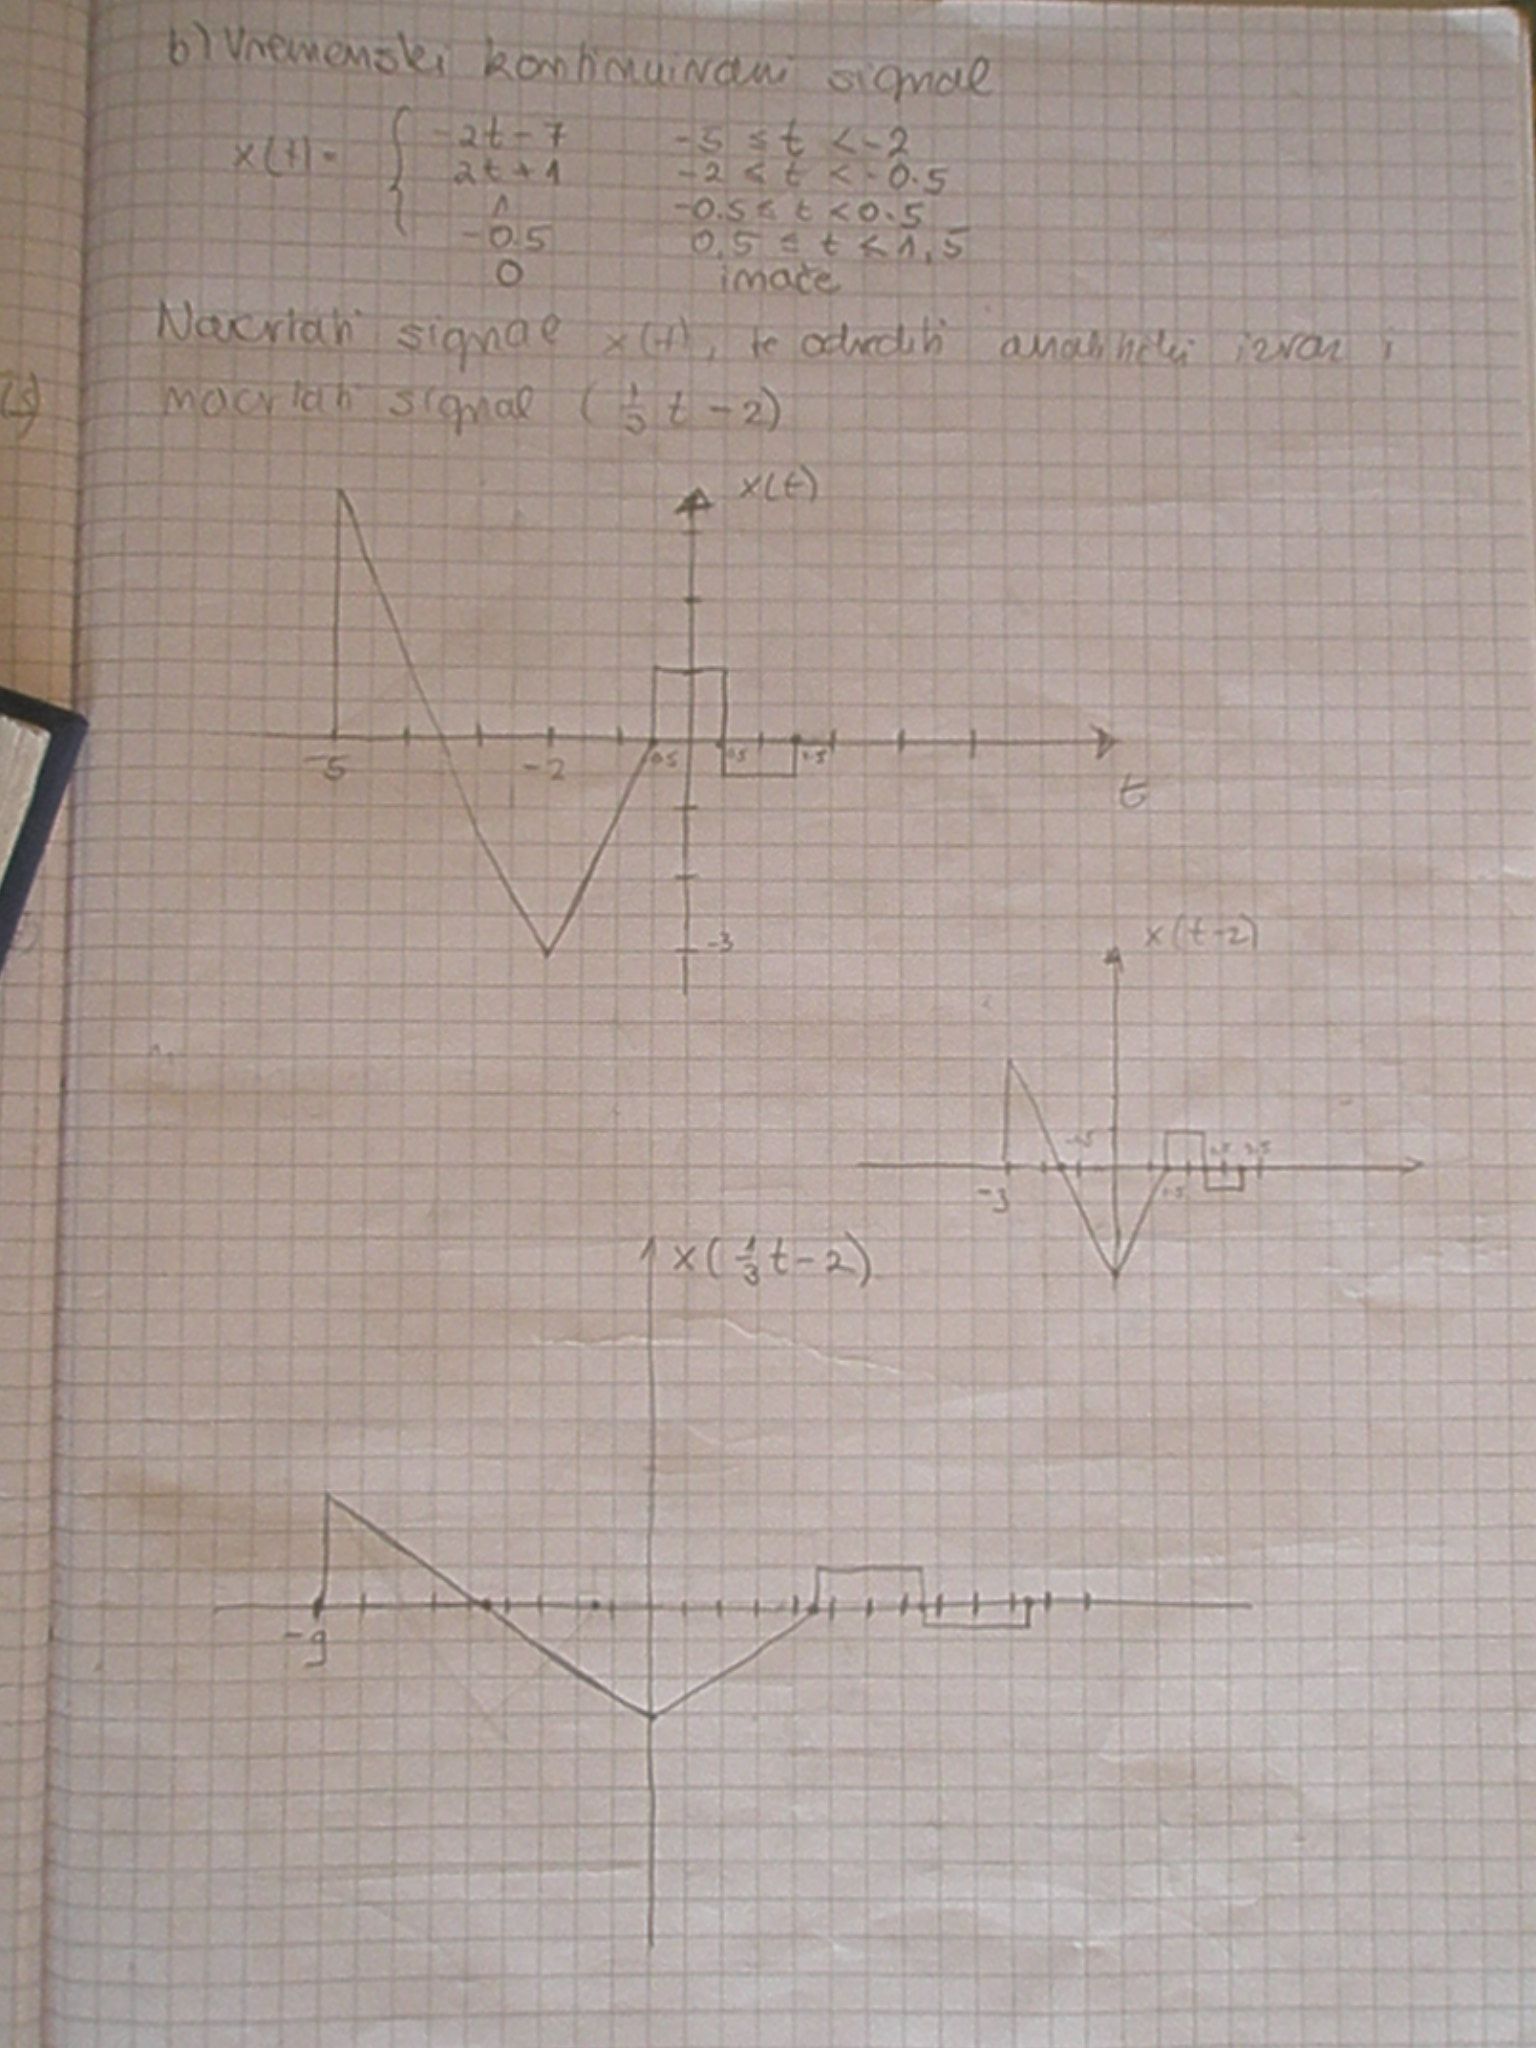 b) Vremenski kontinuirani signal
x(t) = { -2t-7 -5 ≤ t < -2
2t+1 -2 ≤ t < -0.5
1 -0.5 ≤ t < 0.5
-0.5 0.5 ≤ t < 1,5
0 inače
Nacrtati signal x(t), te odrediti analitički izraz i
nacrtati signal (1/3 t - 2)
x(t)
-5 -2 0.5 0.5 1.5
t
-3
x(t-2)
-3 1.5 2.5 3.5
x(1/3 t - 2)
-9